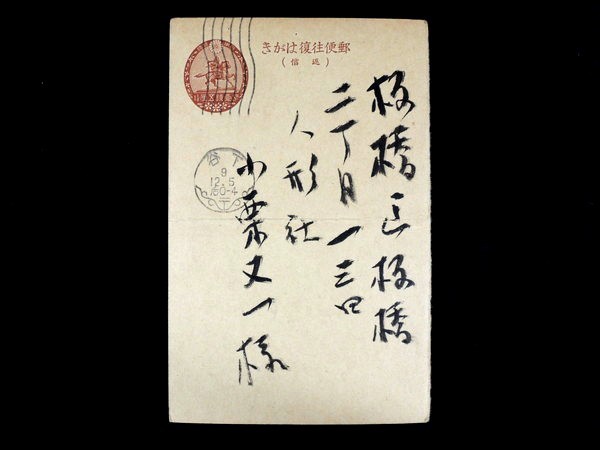 郵便往復はがき
（返信）
板橋区板橋
二丁目一三四
人形社
小栗又一様
下谷
9
12.5
0-4